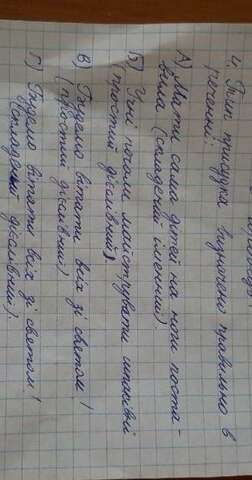 4. Тип присудка визначено правильно в
реченні:
А) Мати сама дітей на ноги поста-
вила (складений іменний)
Б) Учні почали майструвати шпаківні
(простий дієслівний).
В) Будемо вітати всіх зі святом!
(простий дієслівний)
Г) Будемо вітати всіх зі святом!
(складений дієслівний).